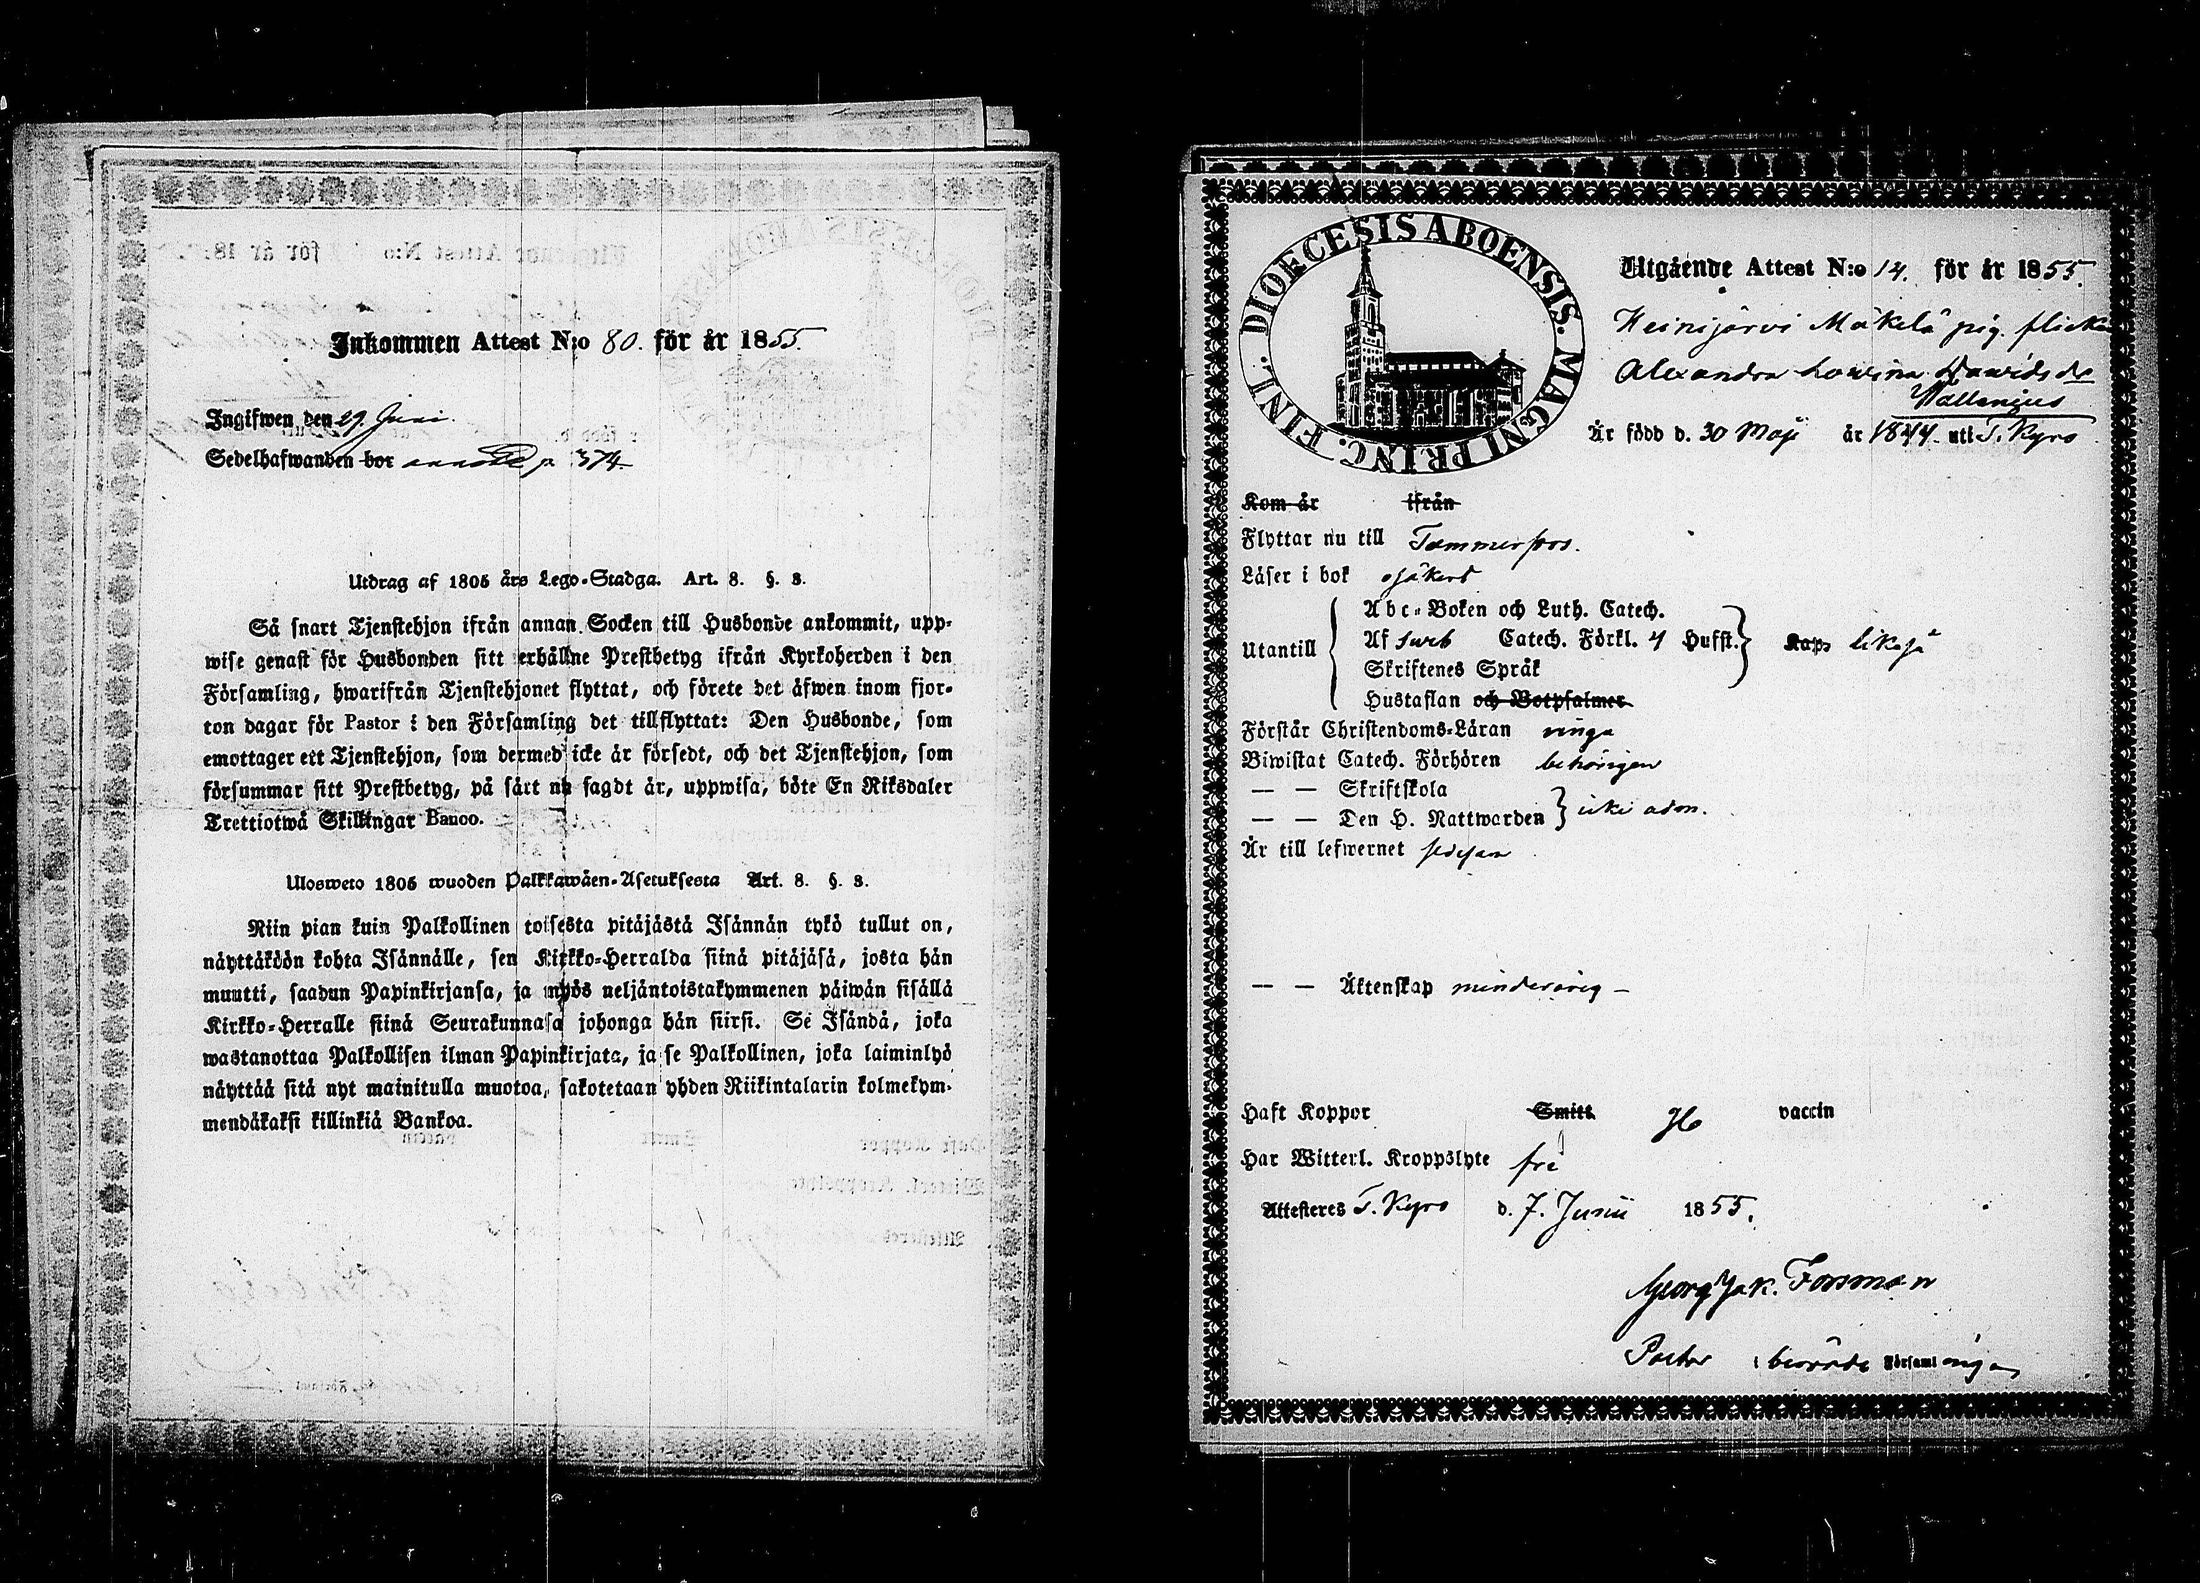 Inkommen Attest N:o 80. för år 1855.
Ingifwen den 29. Juni.
Sedelhafwanden bor p. 374.
Utdrag af 1805 års Lego-Stadga. Art. 8. §. 8.
Så snart Tjenstehjon ifrån annan Socken till Husbonde ankommit, upp-
wise genast för Husbonden sitt erhållne Prestbetyg ifrån Kyrkoherden i den
Församling, hwarifrån Tjenstehjonet flyttat, och förete det äfwen inom fjor-
ton dagar för Pastor i den Församling det tillflyttat: Den Husbonde, som
emottager ett Tjenstehjon, som dermed icke är försedt, och det Tjenstehjon, som
försummar sitt Prestbetyg, på sätt nu sagdt är, uppwisa, böte En Riksdaler
Trettiotwå Skillingar Banco.
Ulosweto 1805 wuoden Palkkawäen-Asetuksesta Art. 8. §. 8.
Niin pian kuin Palkollinen toisesta pitäjästä Isännän tykö tullut on,
näyttäköön kohta Isännälle, sen Kirkko-Herralda siinä pitäjäsä, josta hän
muutti, saadun Papinkirjansa, ja myös neljäntoistakymmenen päiwän sisällä
Kirkko-Herralle siinä Seurakunnasa johonga hän siirsi. Se Isändä, joka
wastanottaa Palkollisen ilman Papinkirjata, ja se Palkollinen, joka laiminlyö
näyttää sitä nyt mainitulla muotoa, sakotetaan yhden Riikintalarin kolmekym-
mendäkaksi killinkiä Bankoa.
DIOECESIS ABOENSIS. MAGNI PRINC. FINL.
Utgående Attest N:o 14. för år 1855.
Heinijärvi Mäkelä pig. flicka
Alexandra Lovisa Davidsdr
Wallenius
Är född d. 30 Maji år 1844 uti T. Kyro
Kom år ifrån
Flyttar nu till Tammerfors.
Läser i bok osäkert
Abc-Boken och Luth. Catech.
Utantill Af Sveb Catech. Förkl. 4 Hufst. Kaps likaså
Skriftenes Språk
Hustaflan och Botpsalmer
Förstår Christendoms-Läran ringa
Biwistat Catech. Förhören behörigen
— — Skriftskola
— — Den H. Nattwarden icke adm.
Är till lefwernet sedesam
— — Äktenskap minderårig —
Haft Koppor Smitt vaccin
Har Witterl. Kroppslyte fri
Attesteres T. Kyro d. 7. Junii 1855.
Georg Jak. Forsman
Pastor i berörde Församlingen